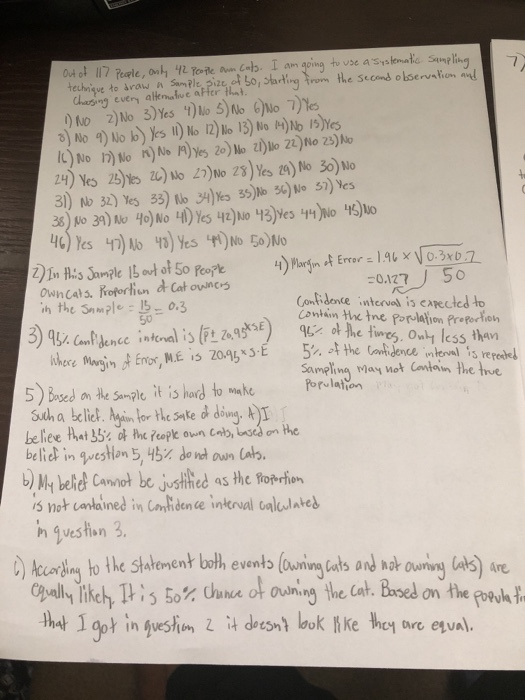 Out of 117 People, only 42 People own Cats. I am going to use a systematic sampling
technique to draw a sample size of 50, starting from the second observation and
choosing every alternative after that.
1) NO 2) NO 3) Yes 4) NO 5) NO 6) NO 7) Yes
8) NO 9) NO 10) Yes 11) NO 12) NO 13) NO 14) NO 15) Yes
16) NO 17) NO 18) NO 19) Yes 20) NO 21) NO 22) NO 23) NO
24) Yes 25) Yes 26) NO 27) NO 28) Yes 29) NO 30) NO
31) NO 32) Yes 33) NO 34) Yes 35) NO 36) NO 37) Yes
38) NO 39) NO 40) NO 41) Yes 42) NO 43) Yes 44) NO 45) NO
46) Yes 47) NO 48) Yes 49) NO 50) NO
2) In this sample 15 out of 50 People
own cats. Proportion of Cat owners
in the sample = 15/50 = 0.3
3) 95% Confidence interval is (p̄ ± Z0.95 x SE)
Where Margin of Error, M.E is Z0.95 x S.E
4) Margin of Error = 1.96 x √0.3x0.7
=0.127 50
Confidence interval is expected to
contain the true population proportion
95% of the times. Only less than
5% of the Confidence interval is repeated
Sampling may not contain the true
Population
5) Based on the sample it is hard to make
such a belief. Again for the sake of doing. A) I
believe that 55% of the People own cats, based on the
belief in question 5, 45% do not own Cats.
b) My belief Cannot be justified as the Proportion
is not contained in Confidence interval calculated
in question 3.
C) According to the statement both events (owning cats and not owning Cats) are
equally likely. It is 50% chance of owning the cat. Based on the
that I got in question 2 it doesn't look like they are equal.
7)